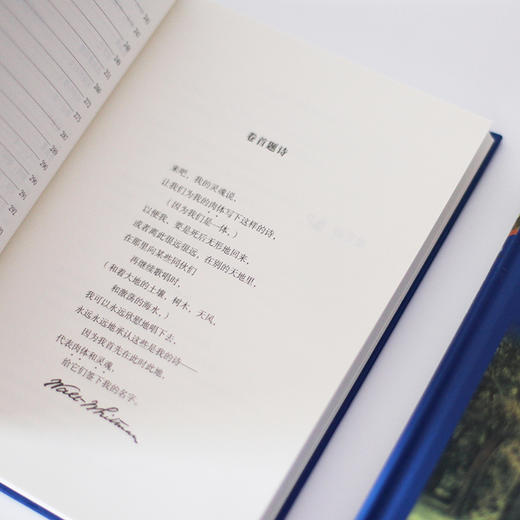 245
249
251
271
273
275
287
289
291
291
292
卷首题诗
来吧，我的灵魂说，
让我们为我的肉体写下这样的诗，
（因为我们是一体，）
以便我，要是死后无形地回来，
或者离此很远很远，在别的天地里，
在那里向某些同伙们
再继续歌唱时，
（和着大地的土壤，树木，天风，
和激荡的海水，）
我可以永远欣慰地唱下去，
永远永远地承认这些是我的诗——
因为我首先在此时此地，
代表肉体和灵魂，
给它们签下我的名字。
Walt Whitman